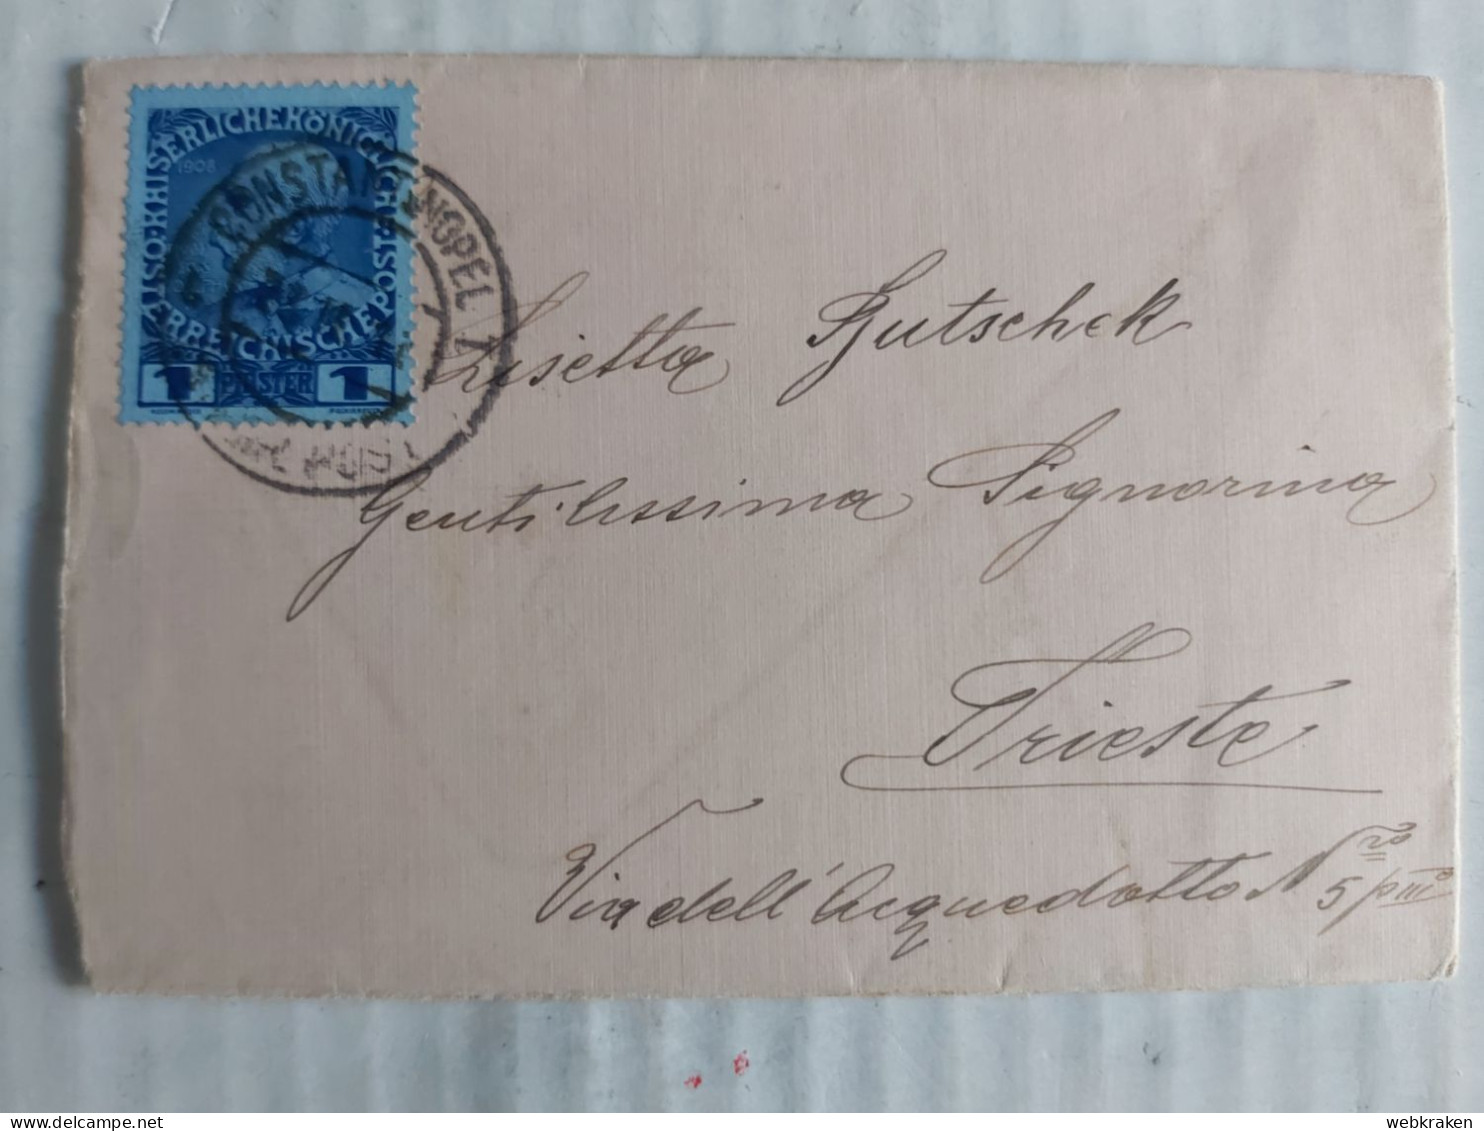 KAISERLICHE KÖNIGLICHE ÖSTERREICHISCHE POST
1908
1 PIASTER 1
KONSTANTINOPEL
POST
Lisetta Butschek
Gentilissima Signorina
Trieste
Via dell'Acquedotto Nro 5 pIIIo
webkraken